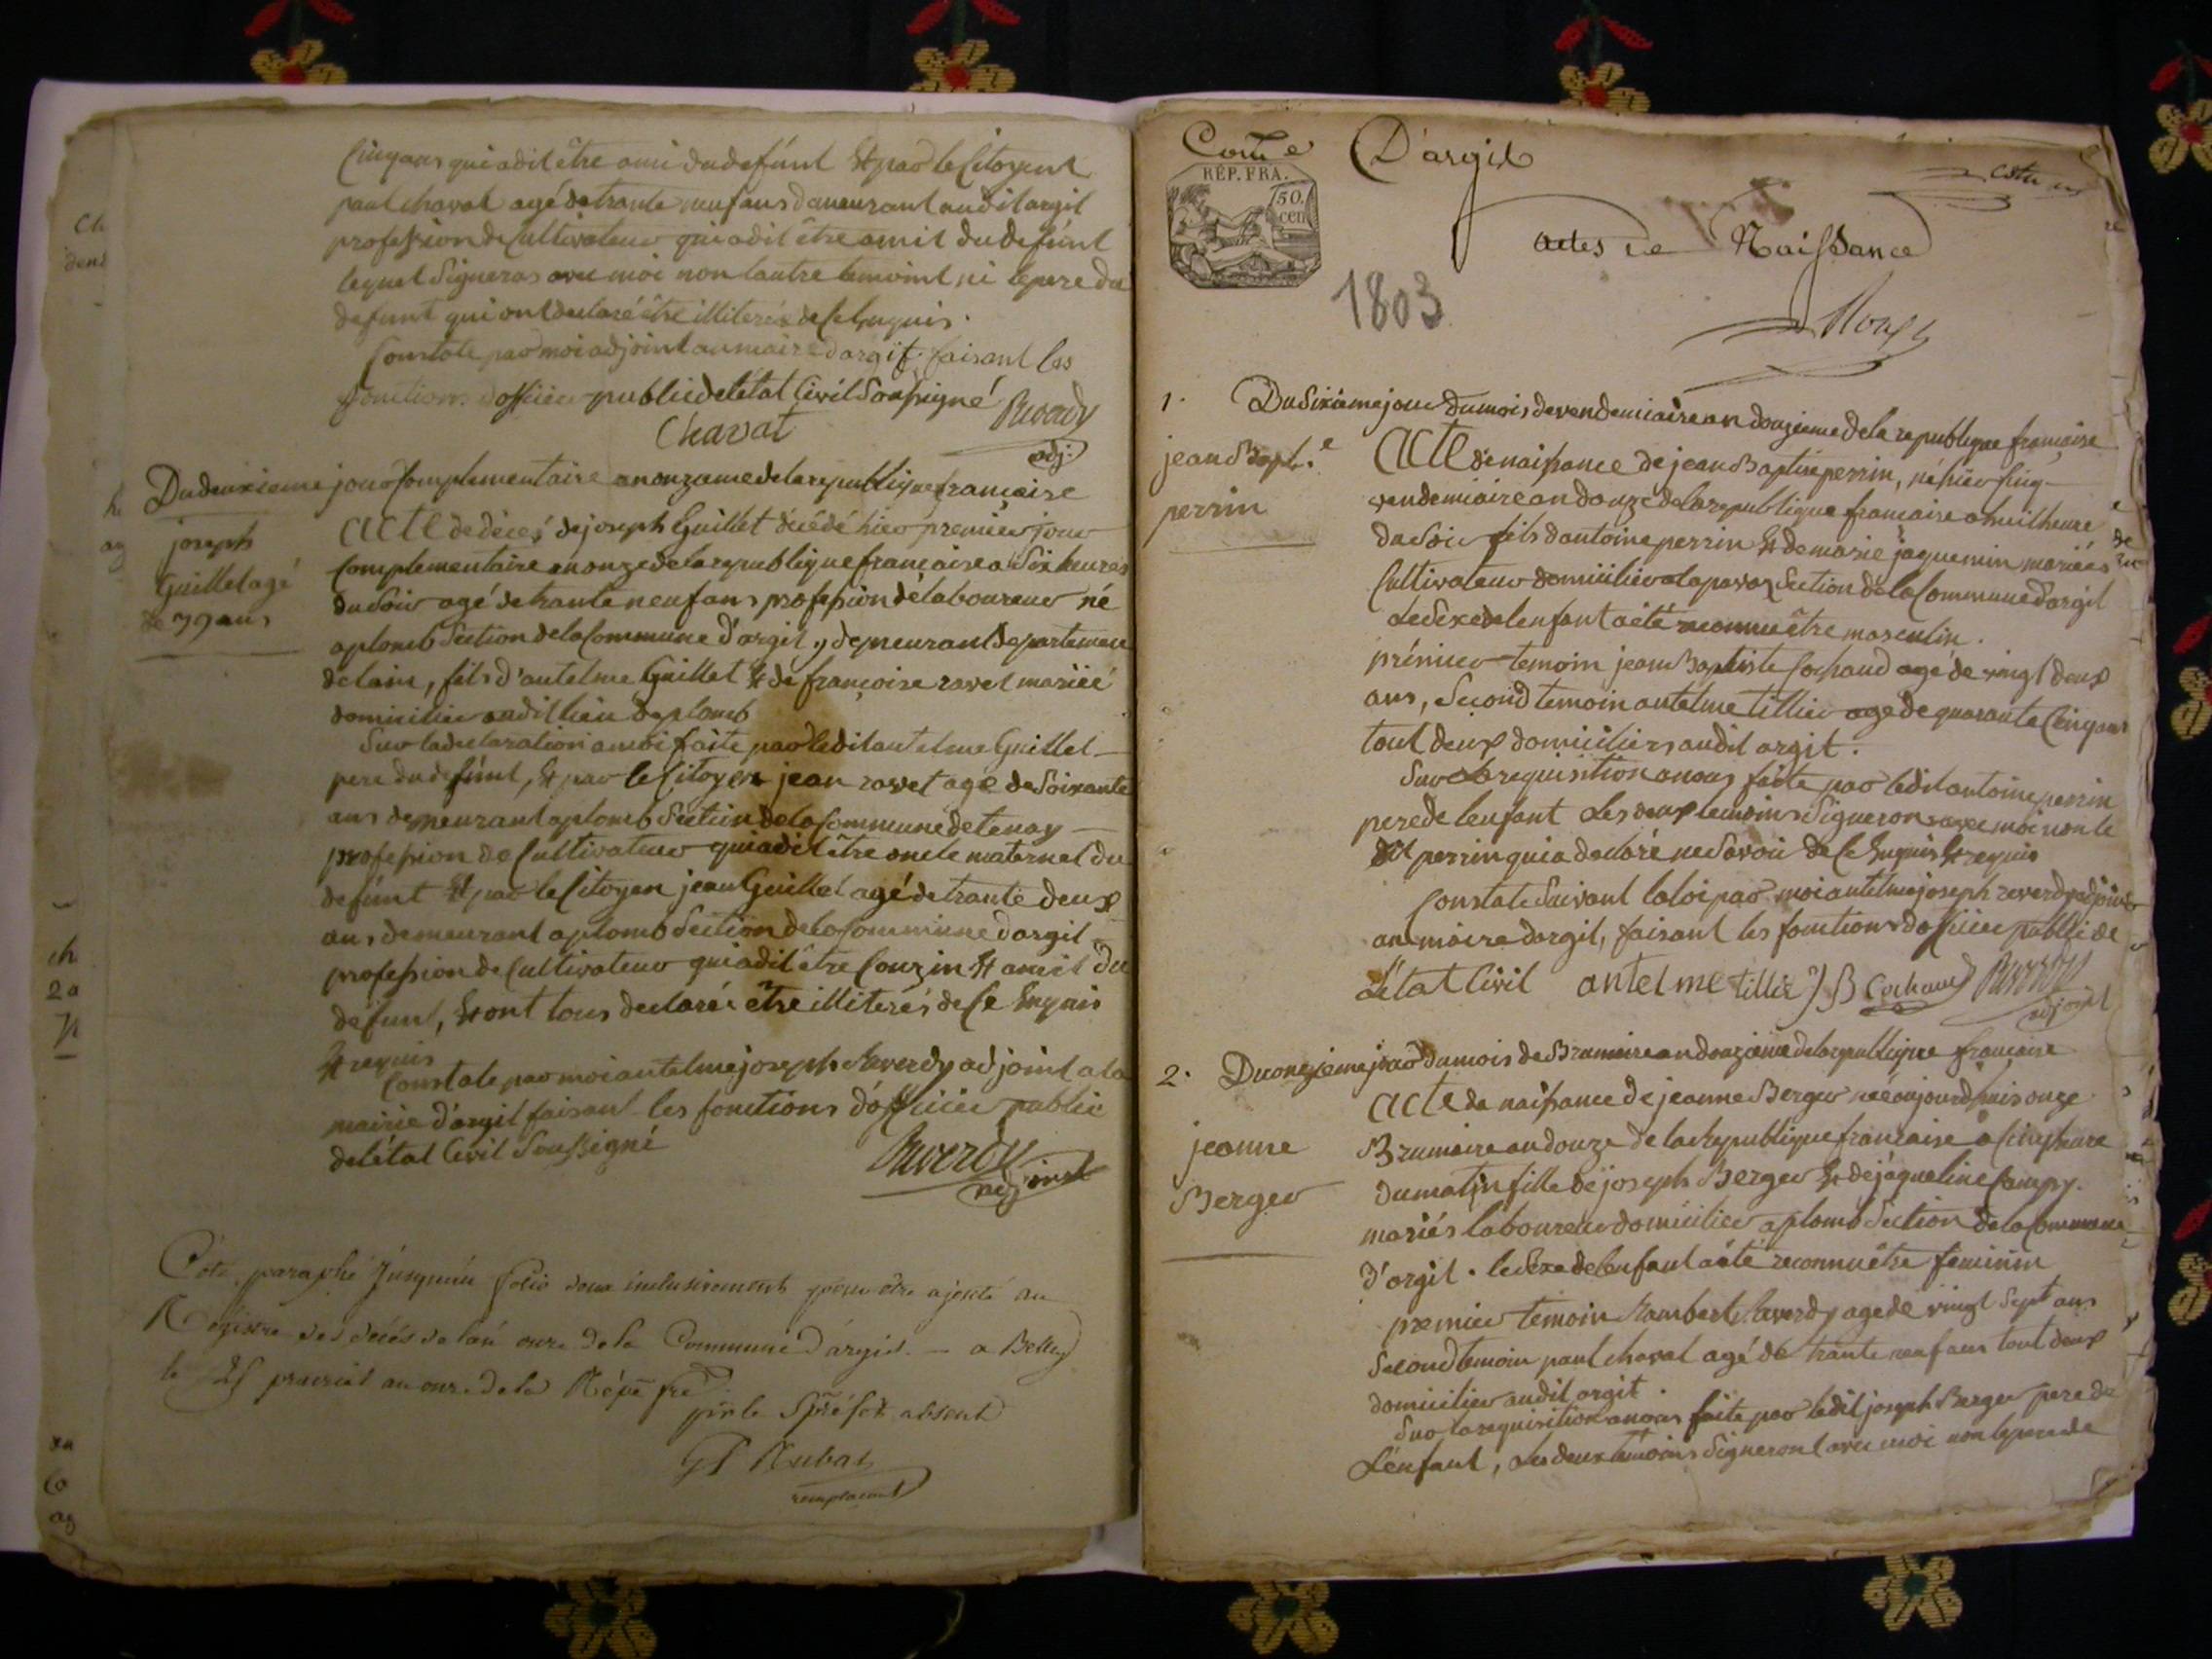 Cinqans qui a dit être ami du defúnt & par le Citoyent
paul chavat agé de trante neuf ans demeurant audit argit
profession de Cultivateur qui a dit être amit du defúnt
lequel Signeras avec moi non lautre temoint ni le pere du
defunt qui ont declaré être illiterés de Ce Enquis.
Constaté par moi adjoint au maire d'argit faisant les
fonctions d'officier public de létat Civil Sousigné
Chavat
Reverdy
adj.
Du deuxieme jour Complementaire an onzieme de la republique francaise
joseph
Guillet agé
de 39 ans
Acte de décés de joseph Guillet décédé hier premier jour
Complementaire an onze de la republique francaise a Six heures
du Soir agé de trante neuf ans profession de laboureur né
a plomb Section de la Commune d'argit y demeurant Departement
de lain, fils d'antelme Guillet & de françoise ravet mariéé
domicilier audit lieu de plomb
Sur la declaration a moi faite par ledit antelme Guillet
pere du defúnt, & par le Citoyen jean ravet agé de Soixante
ans demeurant a plomb Section de la Commune de tenay
profession de Cultivateur qui a dit être oncle maternel du
defúnt & par le Citoyen jean Guillet agé de trante deux
ans demeurant a plomb Section de la Commune d'argit
profession de Cultivateur qui a dit être Couzin & amit du
defunt, & ont tous declarés être illiterés de Ce Enquis
& requis
Constaté par moi antelme joseph Reverdy adjoint a la
mairie d'argit faisant les fonctions d'officier public
de létat Civil Soussigné
Reverdy
adjoint
Coté, paraphé jusqu'au folio deux inclusivement pour être ajouté au
Registre des décés de l'an onze de la Commune d'argis. — a Belley
le 25 prairial an onze de la Répe fre
pr le S préfet absent
remplacant
Come D'argit
RÉP. FRA.
50.
cen
actes de Naissance
1803
1. Du Sixieme jour du mois de vendemiaire an douzieme de la republique française
jean Bapt.e
perrin
Acte de naissance de jean Baptiste perrin, né hier Cinq
vendemiaire an douze de la republique francaise a huit heure
du Soir fils d'antoine perrin & de marie jaquemin mariés
Cultivateur domicilier a la pavaz Section de la Commune d'argit
Le Sexe de lenfant a été reconnu être masculin.
prémier temoin jean Baptiste Cochaud agé de vingt deux
ans, Second temoin antelme tillier agé de quarante Cinq ans
tout deux domiciliers audit argit.
Sur la requisition a nous faite par ledit antoine perrin
pere de lenfant Les deux temoins Signerons avec moi non le
dit perrin qui a declaré ne Savoir de Ce Enquis & requis
Constaté Suivant la loi par moi antelme joseph reverdy adjoint
au maire d'argit, faisant les fonctions d'officier public de
L'état Civil antelme tillier J B Cochaud Reverdy
adjoint
2. Du onzieme jour du mois de Brumaire an douzieme de la republique francaise
jeanne
Berger
Acte de naissance de jeanne Berger née aujourdhuis onze
Brumaire an douze de la Republique francaise a Cinq heure
du matin fille de joseph Berger & de jaqueline Campy.
mariés laboureur domicilier a plomb Section de la Commune
d'argit. le Sexe de lenfant a été reconnu être feminin
premier temoin Rambert Reverdy agé de vingt Sept ans
Second temoin paul chavat agé de trante neuf ans tout deux
domicilier audit argit.
Sur la requisition a nous faite par ledit joseph Berger pere de
L'enfant, Les deux temoins Signeront avec moi non le pere de